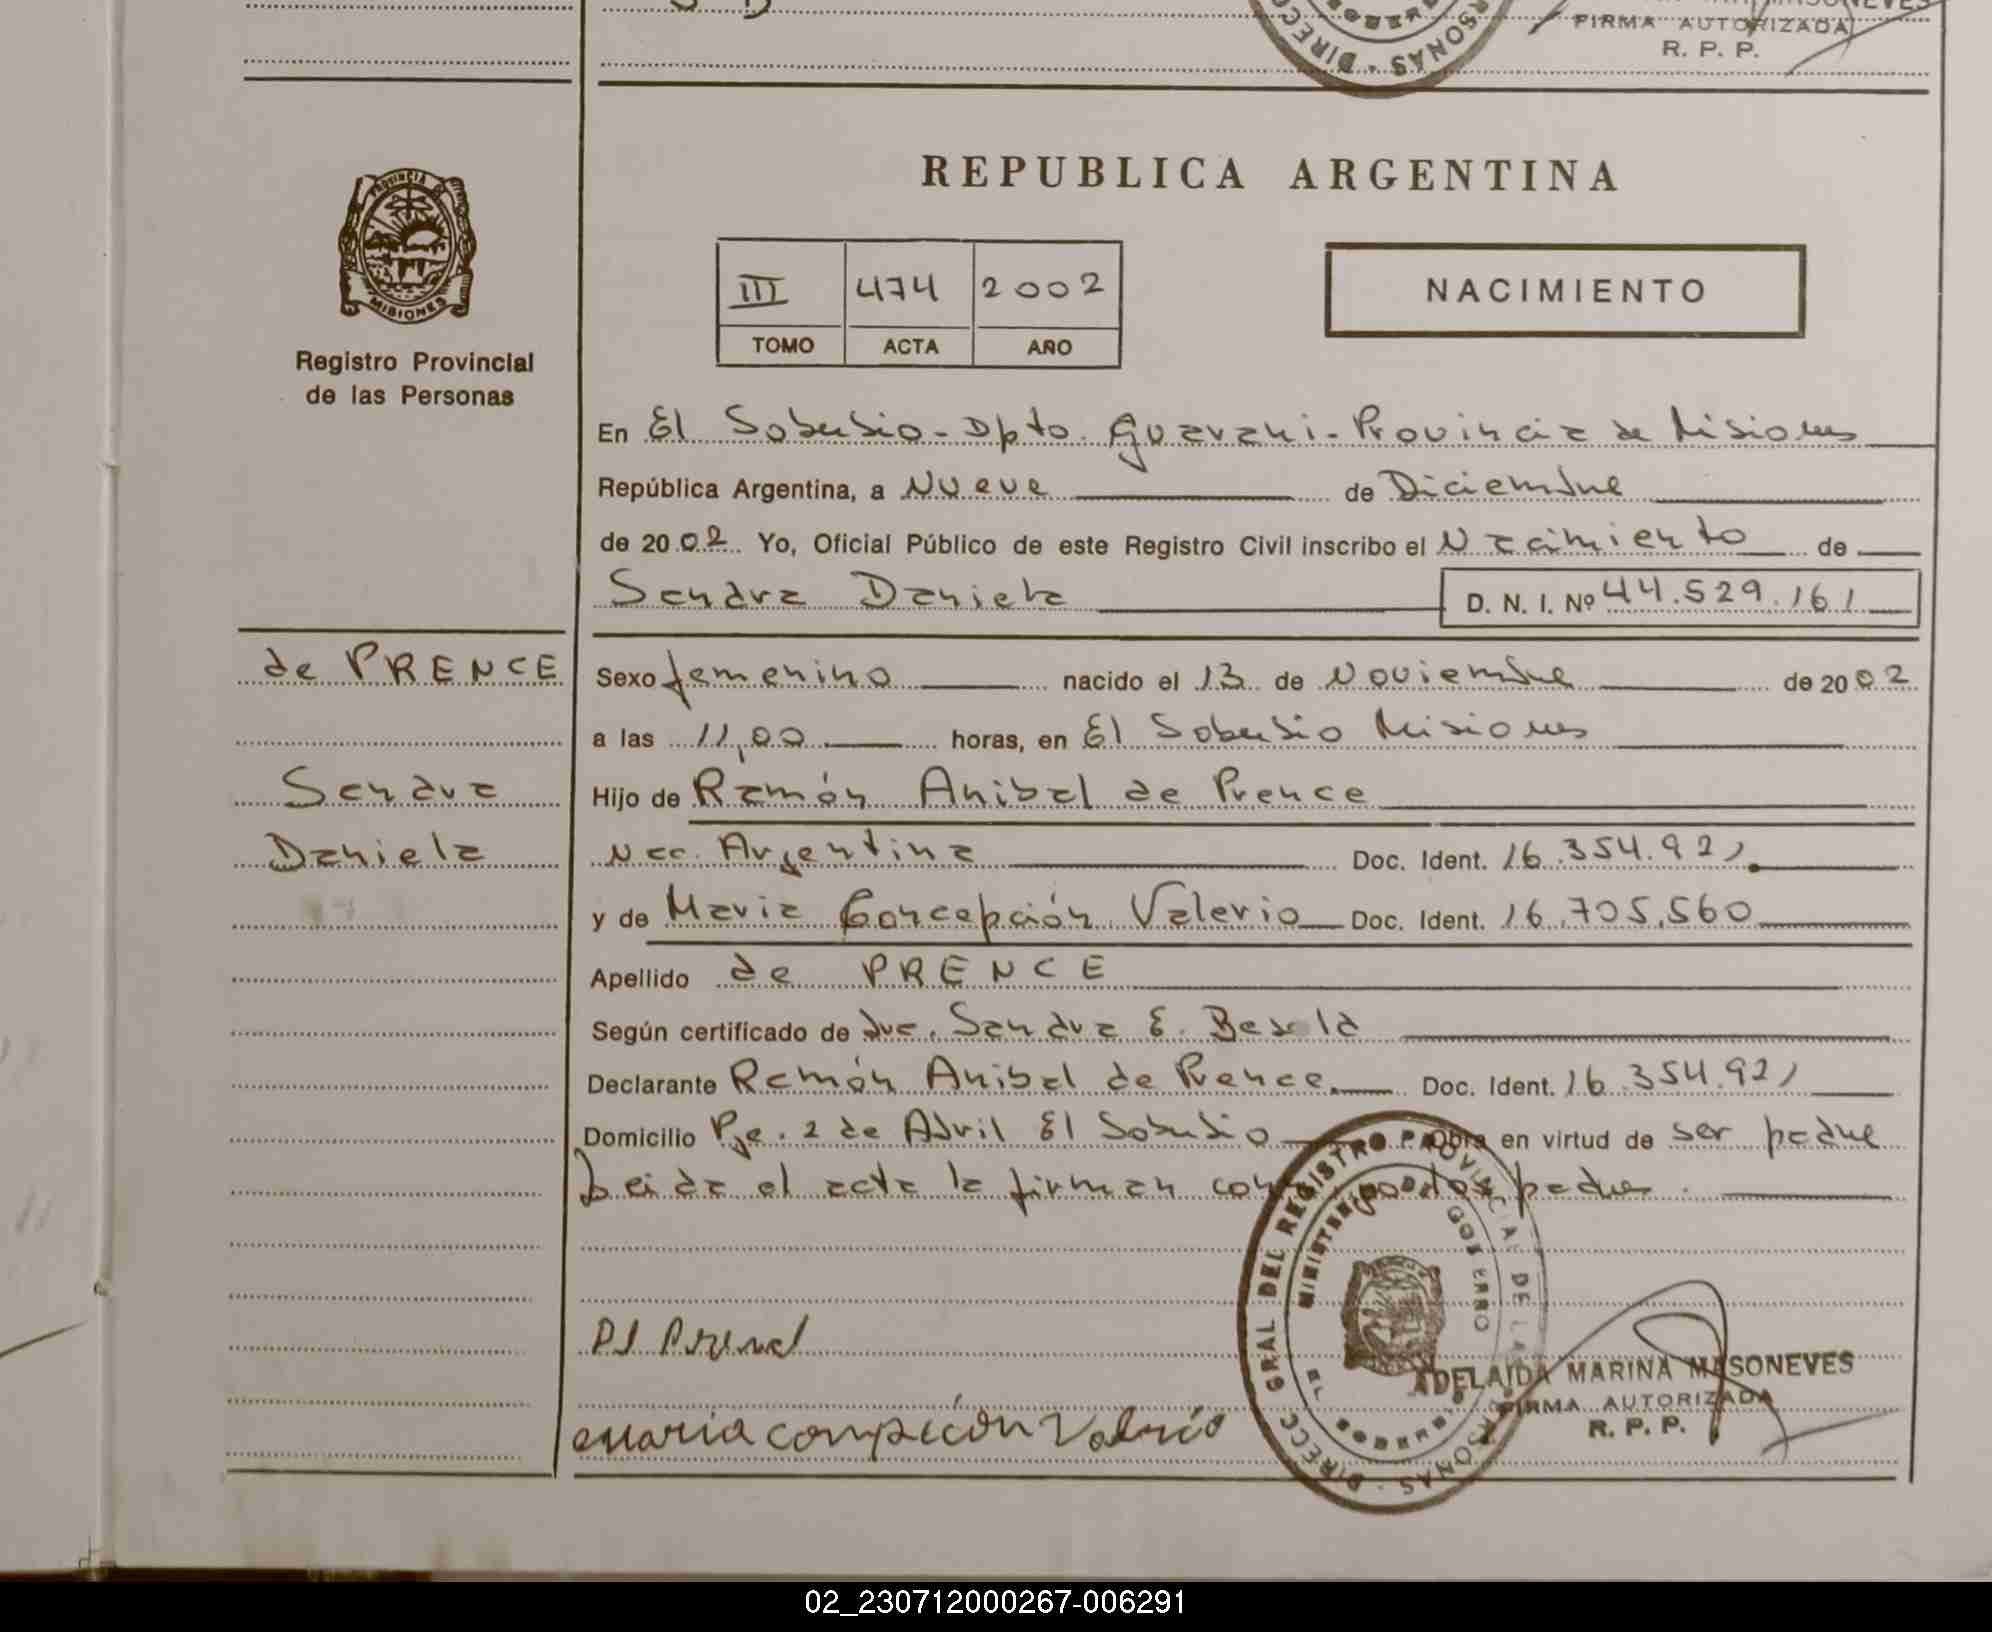 FIRMA AUTORIZADA
R. P. P.
PROVINCIA DE
MISIONES
Registro Provincial
de las Personas
REPUBLICA ARGENTINA
III 474 2002
TOMO ACTA AÑO
NACIMIENTO
En El Soberbio - Dpto. Guarani - Provincia de Misiones
República Argentina, a Nueve de Diciembre
de 2002 Yo, Oficial Público de este Registro Civil inscribo el Nacimiento de
Sandra Daniela D. N. I. Nº 44.529.161
de PRENCE
Sandra
Daniela
Sexo femenino nacido el 13 de Noviembre de 2002
a las 11,00 horas, en El Soberbio Misiones
Hijo de Ramón Anibal de Prence
Nac. Argentina Doc. Ident. 16.354.921
y de Maria Concepción Valerio Doc. Ident. 16.705.560
Apellido de PRENCE
Según certificado de Dra. Sandra E.
Declarante Ramón Anibal de Prence. Doc. Ident. 16.354.921
Domicilio Pje. 2 de Abril El Soberbio Obra en virtud de ser padre
Leida el acta la firman con padres.
DIRECC. GRAL DEL REGISTRO PROVINCIAL DE LAS PERSONAS
MINISTERIO DE GOBIERNO
EL SOBERBIO
ADELAIDA MARINA MASONEVES
FIRMA AUTORIZADA
R. P. P.
02_230712000267-006291